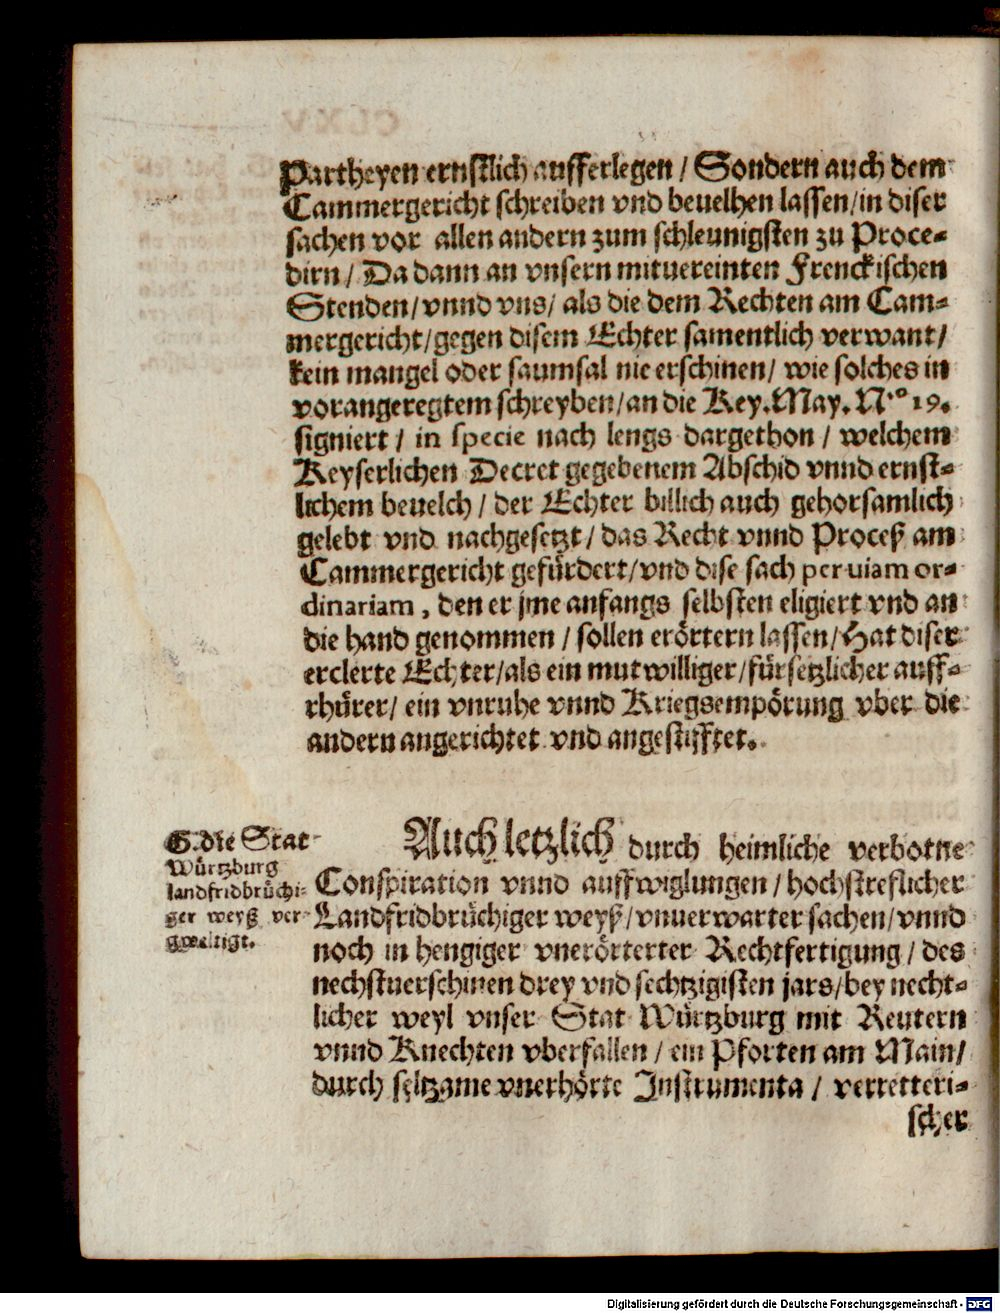 Partheyen ernstlich aufferlegen / Sondern auch dem
Cammergericht schreiben vnd beuelhen lassen/in diser
sachen vor allen andern zum schleunigsten zu Proce-
dirn / Da dann an vnsern mituereinten Frenckischen
Stenden/vnnd vns/ als die dem Rechten am Cam-
mergericht/gegen disem Echter samentlich verwant/
kein mangel oder saumsal nie erschinen/ wie solches in
vorangeregtem schreyben/an die Key.May. N.º 19.
signiert / in specie nach lengs dargethon / welchem
Keyserlichen Decret gegebenem Abschid vnnd ernst-
lichem beuelch / der Echter billich auch gehorsamlich
gelebt vnd nachgesetzt / das Recht vnnd Proceß am
Cammergericht gefürdert/vnd dise sach per uiam or-
dinariam, den er jme anfangs selbsten eligiert vnd an
die hand genommen / sollen erörtern lassen/Hat diser
erclerte Echter/als ein mutwilliger/fürsetzlicher auff-
rhürer/ ein vnruhe vnnd Kriegsempörung vber die
andern angerichtet vnd angestifftet.
G. die Stat
Würtzburg
landfridbrüchi-
ger weyß ver-
gweltigt.
Auch letzlich durch heimliche verbotne
Conspiration vnnd auffwiglungen / hochstreflicher
Landfridbrüchiger weyß/vnuerwarter sachen/vnnd
noch in hengiger vnerörterter Rechtfertigung / des
nechstuerschinen drey vnd sechtzigisten jars/bey necht-
licher weyl vnser Stat Würtzburg mit Reutern
vnnd Knechten vberfallen / ein Pforten am Main/
durch seltzame vnerhörte Instrumenta / verretteri-
scher
CLXV
Digitalisierung gefördert durch die Deutsche Forschungsgemeinschaft - DFG